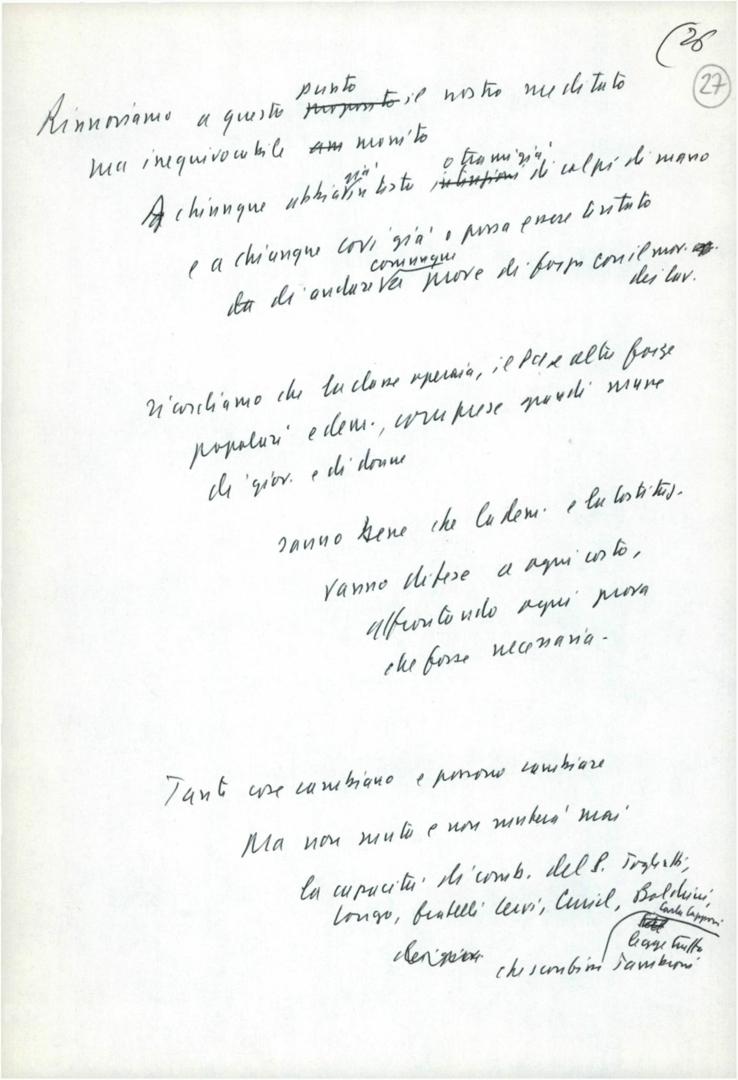 (26
27
Rinnoviamo a questo punto il nostro meditato
ma inequivocabile monito
A chiunque abbia già in testo o trami già di colpi di mano
e a chiunque covi già o possa essere tentato
di andare comunque a prove di forza con il mov.
dei lav.
ricordiamo che la classe operaia, il PCI e altre forze
popolari e dem., comprese grandi masse
di giov. e di donne
sanno bene che la dem. e la Costituz.
vanno difese a ogni costo,
affrontando ogni prova
che fosse necessaria.
Tante cose cambiano e possono cambiare
Ma non muta e non muterà mai
la capacità di comb. del P. Togliatti,
Longo, fratelli Cervi, Curiel, Boldrini,
Carla Capponi
legge truffa
che sconfisse Tambroni